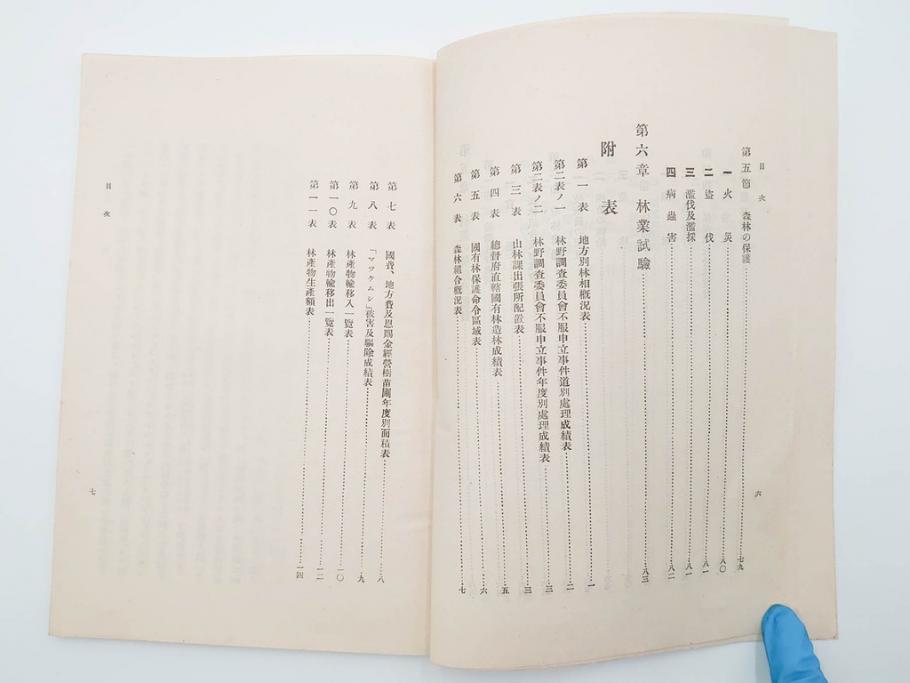 目次
第五節 森林の保護……七九
一 火災……八〇
二 盜伐……八一
三 濫伐及濫採……八一
四 病蟲害……八二
第六章 林業試驗……八三
附表
第一表 地方別林相概況表……一
第二表ノ一 林野調査委員會不服申立事件道別處理成績表……二
第二表ノ二 林野調査委員會不服申立事件年度別處理成績表……三
第三表 山林課出張所配置表……三
第四表 總督府直轄國有林造林成績表……五
第五表 國有林保護命令區域表……六
第六表 森林組合概況表……七
六
目次
第七表 國費、地方費及恩賜金經營樹苗圃年度別面積表……八
第八表 「マツケムシ」被害及驅除成績表……九
第九表 林產物輸移入一覽表……一〇
第一〇表 林產物輸移出一覽表……一二
第一一表 林產物生產額表……一四
七